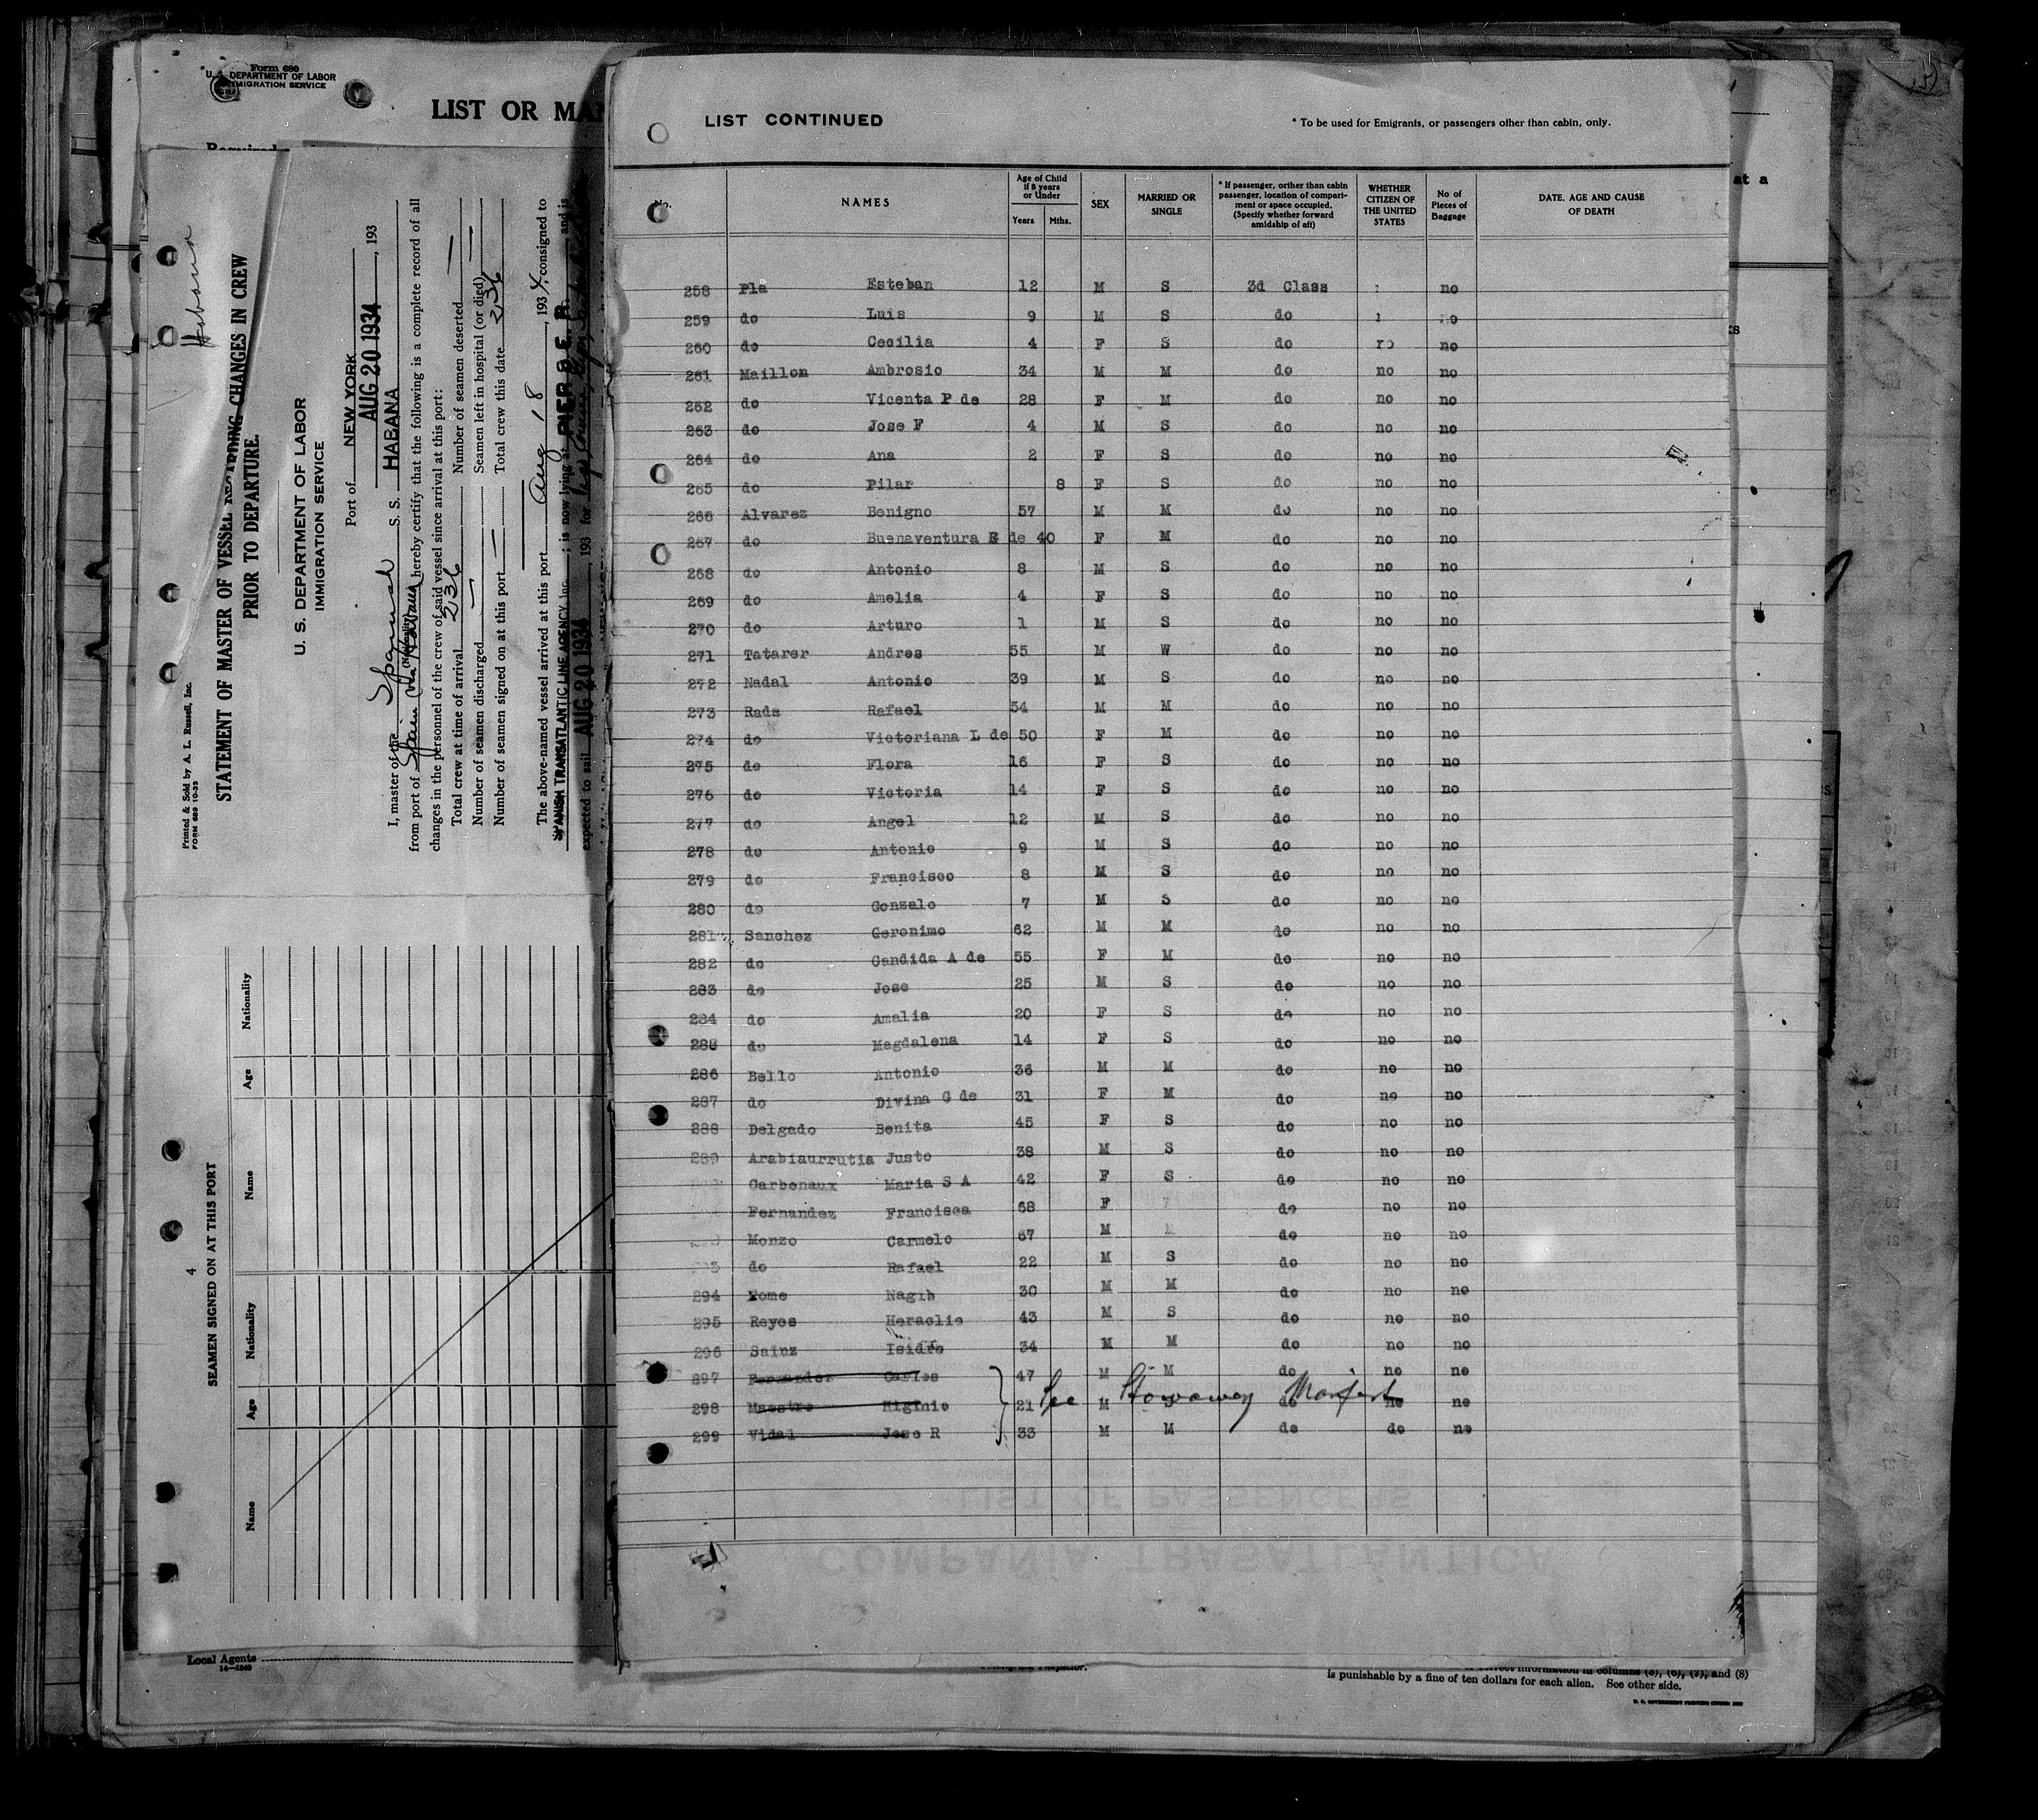 Form 680
U. S. DEPARTMENT OF LABOR
IMMIGRATION SERVICE
LIST OR MAN
Required
Habana
Printed & Sold by A. L. Russell, Inc.
FORM 689 10-33
STATEMENT OF MASTER OF VESSEL REGARDING CHANGES IN CREW
PRIOR TO DEPARTURE.
U. S. DEPARTMENT OF LABOR
IMMIGRATION SERVICE
Port of NEW YORK
AUG 20 1934, 193
I, master of the Spanish S. S. HABANA
(Nationality)
from port of Spain via Havana hereby certify that the following is a complete record of all
changes in the personnel of the crew of said vessel since arrival at this port:
Total crew at time of arrival 236 Number of seamen deserted —
Number of seamen discharged — Seamen left in hospital (or died) —
Number of seamen signed on at this port — Total crew this date 236
The above-named vessel arrived at this port Aug 18, 1934, consigned to
SPANISH TRANSATLANTIC LINE AGENCY Inc.; is now lying at PIER 8 E. R. and is
expected to sail AUG 20 1934, 193 for
4
SEAMEN SIGNED ON AT THIS PORT
Name Age Nationality Name Age Nationality
Local Agents
14—1240
LIST CONTINUED
* To be used for Emigrants, or passengers other than cabin, only.
No. NAMES Age of Child if 8 years or Under Years Mths. SEX MARRIED OR SINGLE * If passenger, orther than cabin passenger, location of compartiment or space occupied. (Specify whether forward amidship of aft) WHETHER CITIZEN OF THE UNITED STATES No of Pieces of Baggage DATE. AGE AND CAUSE OF DEATH
258 Pla Esteban 12 M S 3d Class no
259 do Luis 9 M S do no
260 do Cecilia 4 F S do no no
261 Maillon Ambrosio 34 M M do no no
262 do Vicenta P de 28 F M do no no
263 do Jose F 4 M S do no no
264 do Ana 2 F S do no no
265 do Pilar 8 F S do no no
266 Alvarez Benigno 57 M M do no no
267 do Buenaventura R de 40 F M do no no
268 do Antonio 8 M S do no no
269 do Amelia 4 F S do no no
270 do Arturo 1 M S do no no
271 Tatarer Andres 55 M W do no no
272 Nadal Antonio 39 M S do no no
273 Rada Rafael 54 M M do no no
274 do Victoriana L de 50 F M do no no
275 do Flora 16 F S do no no
276 do Victoria 14 F S do no no
277 do Angel 12 M S do no no
278 do Antonio 9 M S do no no
279 do Francisco 8 M S do no no
280 do Gonzalo 7 M S do no no
281 Sanchez Geronimo 62 M M do no no
282 do Candida A de 55 F M do no no
283 do Jose 25 M S do no no
284 do Amalia 20 F S do no no
285 do Magdalena 14 F S do no no
286 Bello Antonio 36 M M do no no
287 do Divina G de 31 F M do no no
288 Delgado Benita 45 F S do no no
289 Arabiaurrutia Justo 38 M S do no no
Carbonaux Maria S A 42 F S do no no
Fernandez Francisca 68 F do no no
Monzo Carmelo 67 M do no no
do Rafael 22 M S do no no
294 Nagib 30 M M do no no
295 Reyes Heraclio 43 M S do no no
296 Sainz Isidro 34 M M do no no
297 Fernandez Carlos 47 M M do no no
298 Maestro Higinio 21 M do no no
See Stowaway Manifest
299 Vidal Jose R 33 M M do do no
LIST OF PASSENGERS
COMPAÑÍA TRASATLÁNTICA
at a
correct information in columns (3), (6), (7), and (8)
is punishable by a fine of ten dollars for each alien. See other side.
U. S. GOVERNMENT PRINTING OFFICE